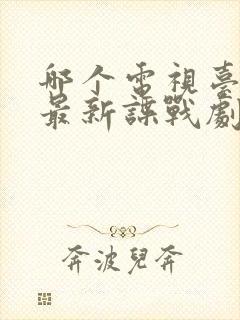 哪个電視臺
最新諜戰劇
奔波兒奔